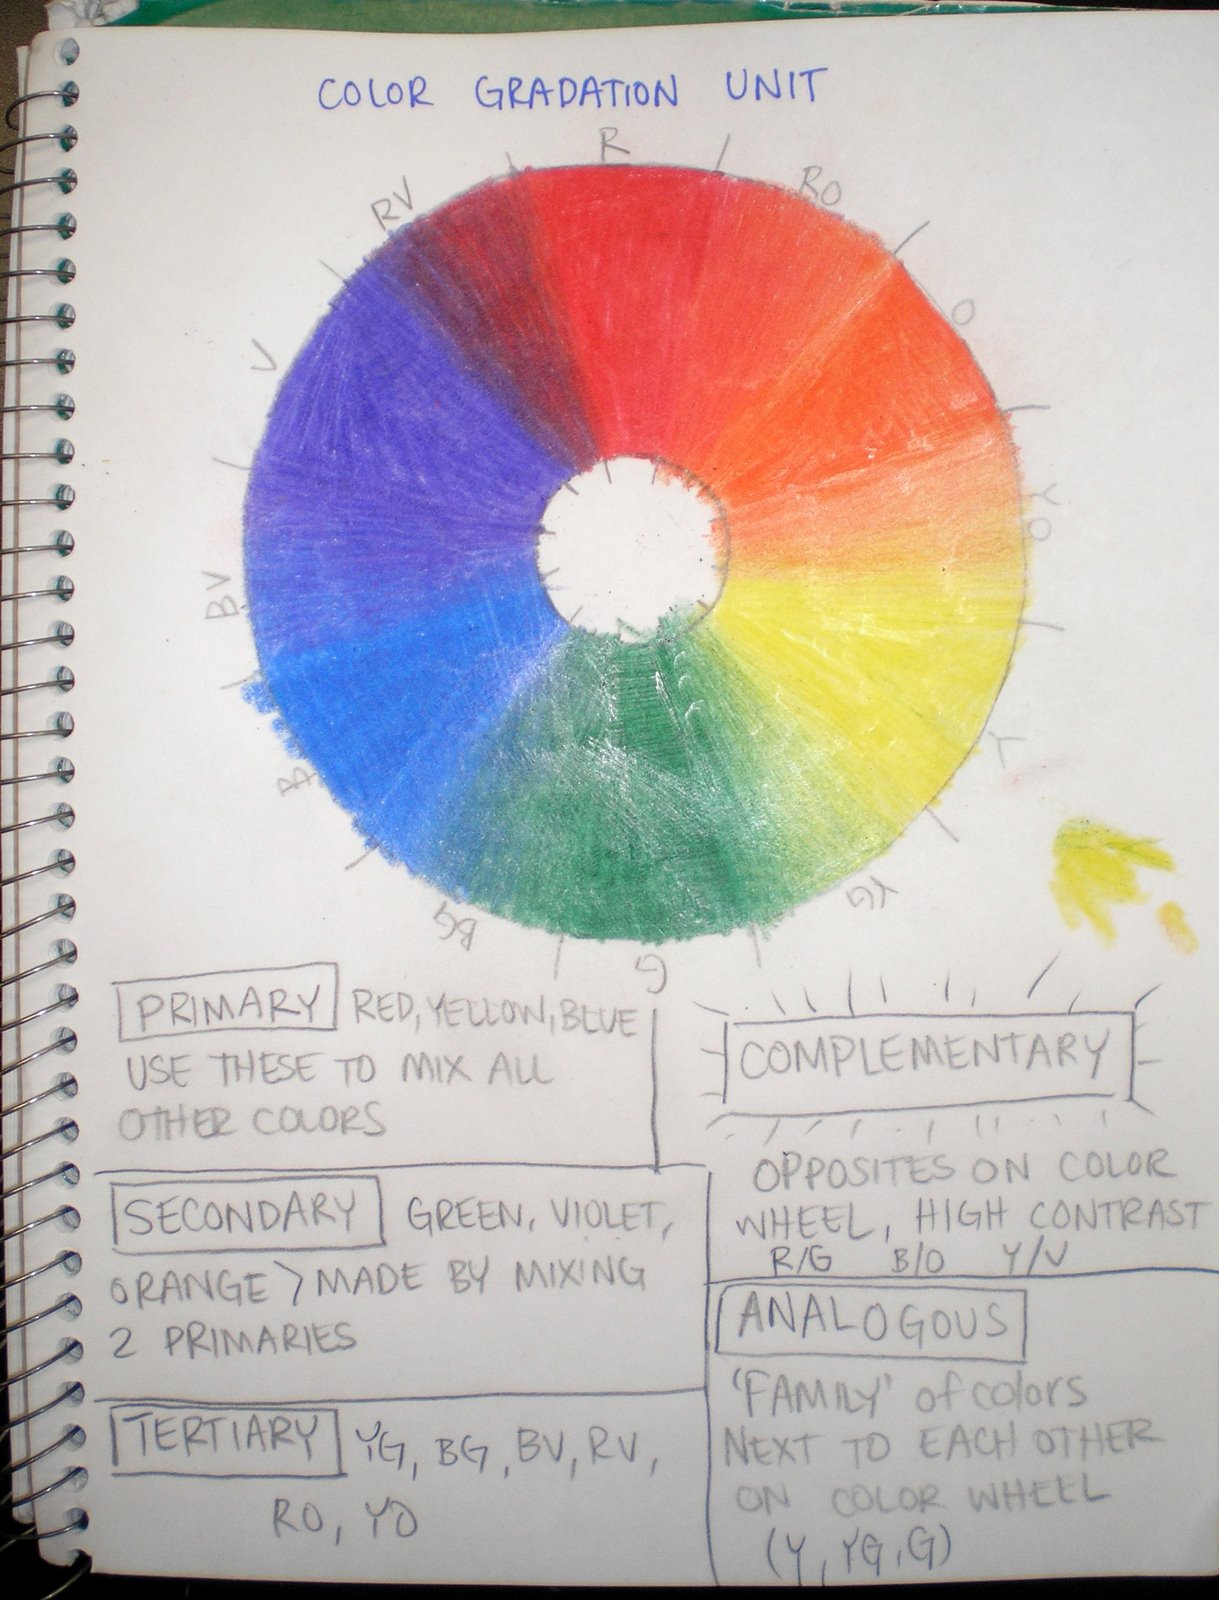 COLOR GRADATION UNIT
R
RO
O
YO
Y
YG
G
BG
B
BV
V
RV
PRIMARY RED, YELLOW, BLUE
USE THESE TO MIX ALL
OTHER COLORS
SECONDARY GREEN, VIOLET,
ORANGE > MADE BY MIXING
2 PRIMARIES
TERTIARY YG, BG, BV, RV,
RO, YO
COMPLEMENTARY
OPPOSITES ON COLOR
WHEEL, HIGH CONTRAST
R/G B/O Y/V
ANALOGOUS
'FAMILY' of colors
NEXT TO EACH OTHER
ON COLOR WHEEL
(Y, YG, G)